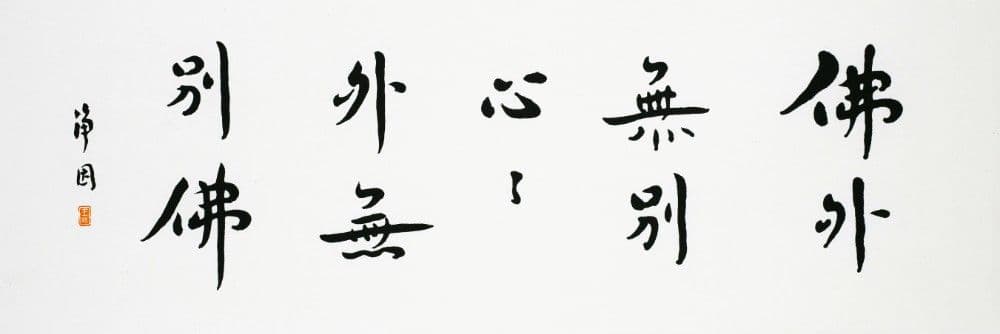 佛外
無別
心々
外無
別佛
净因